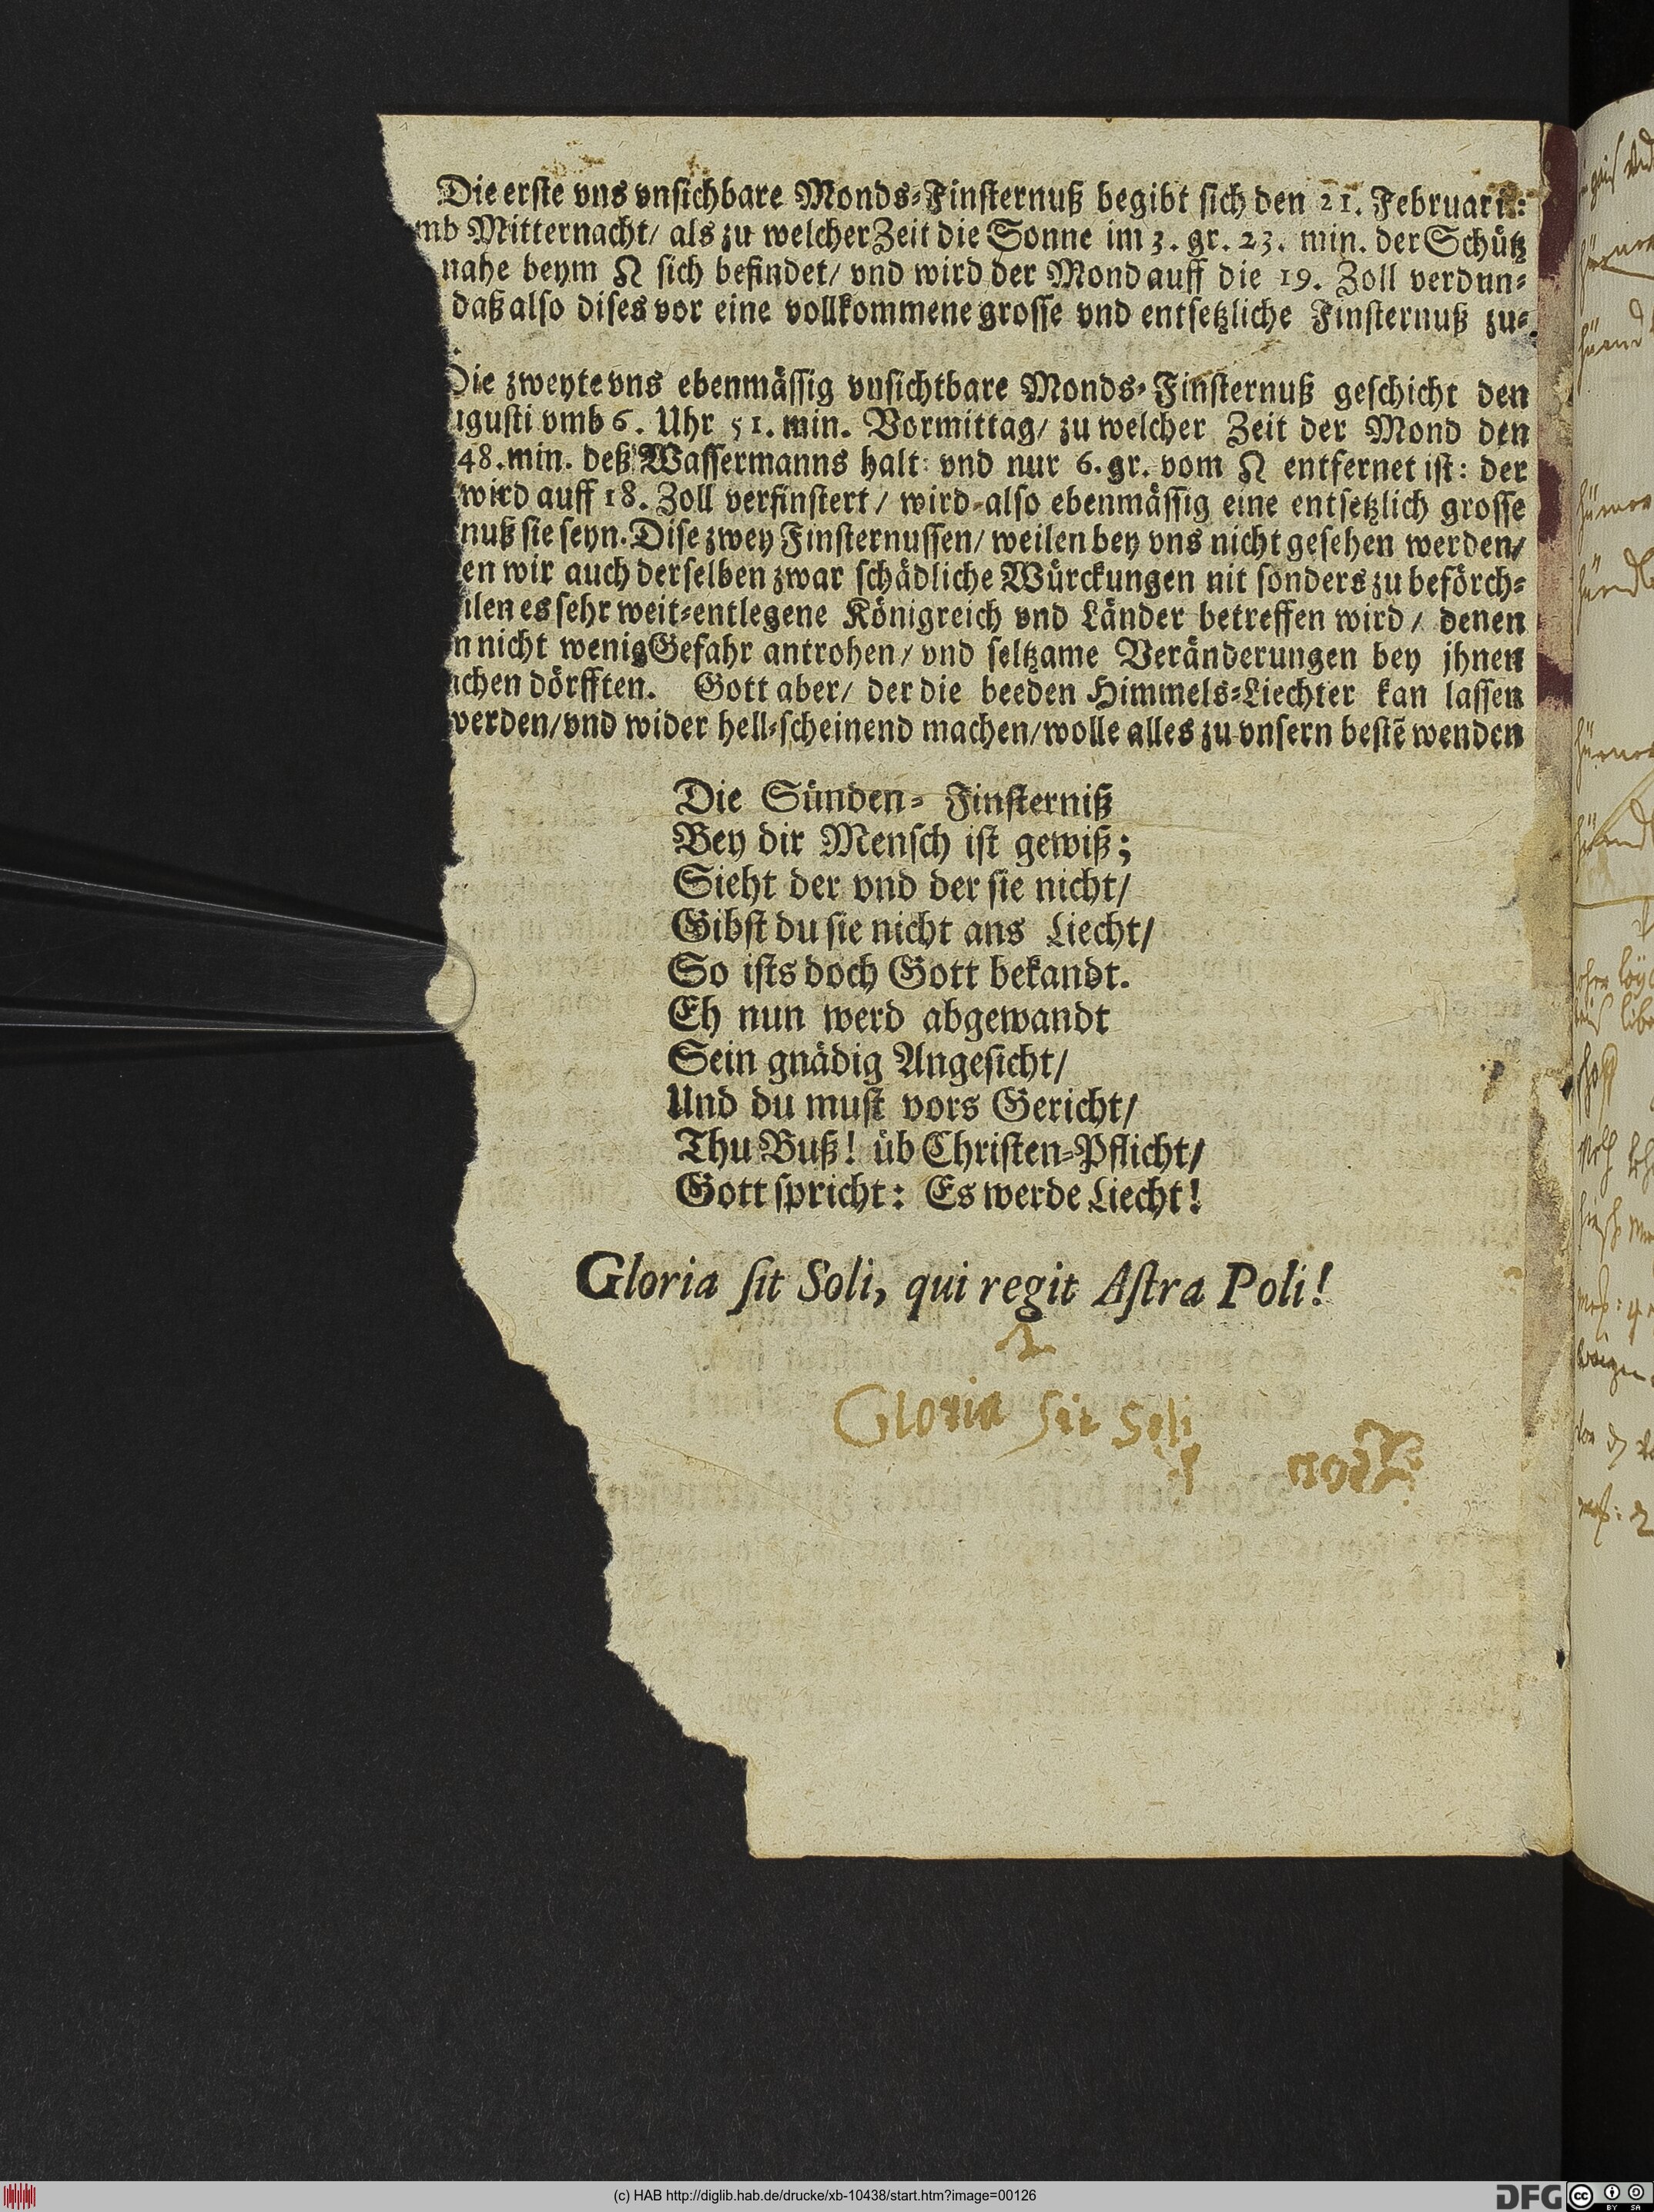 Die erste vns vnsichbare Monds-Finsternuß begibt sich den 21. Februarii:
mb Mitternacht/ als zu welcher Zeit die Sonne im 3. gr. 23. min. der Schütz
nahe beym ☊ sich befindet/ vnd wird der Mond auff die 19. Zoll verdun-
daß also dises vor eine vollkommene grosse vnd entsetzliche Finsternuß zu-
Die zweyte vns ebenmässig vnsichtbare Monds-Finsternuß geschicht den
ugusti vmb 6. Uhr 51. min. Vormittag/ zu welcher Zeit der Mond den
48. min. deß Wassermanns halt: vnd nur 6. gr. vom ☊ entfernet ist: der
wird auff 18. Zoll verfinstert/ wird also ebenmässig eine entsetzlich grosse
nuß sie seyn. Dise zwey Finsternussen/ weilen bey vns nicht gesehen werden/
en wir auch derselben zwar schädliche Würckungen nit sonders zu beförch-
ilen es sehr weit-entlegene Königreich vnd Länder betreffen wird/ denen
n nicht wenig Gefahr antrohen/ vnd seltzame Veränderungen bey jhnen
achen dörfften. Gott aber/ der die beeden Himmels-Liechter kan lassen
werden/ vnd wider hell-scheinend machen/ wolle alles zu vnsern bestē wenden
Die Sünden-Finsterniß
Bey dir Mensch ist gewiß;
Sieht der vnd der sie nicht/
Gibst du sie nicht ans Liecht/
So ists doch Gott bekandt.
Eh nun werd abgewandt
Sein gnädig Angesicht/
Und du must vors Gericht/
Thu Buß! üb Christen-Pflicht/
Gott spricht: Es werde Liecht!
Gloria sit Soli, qui regit Astra Poli!
Gloria sit Soli
(c) HAB http://diglib.hab.de/drucke/xb-10438/start.htm?image=00126
DFG
cc BY SA